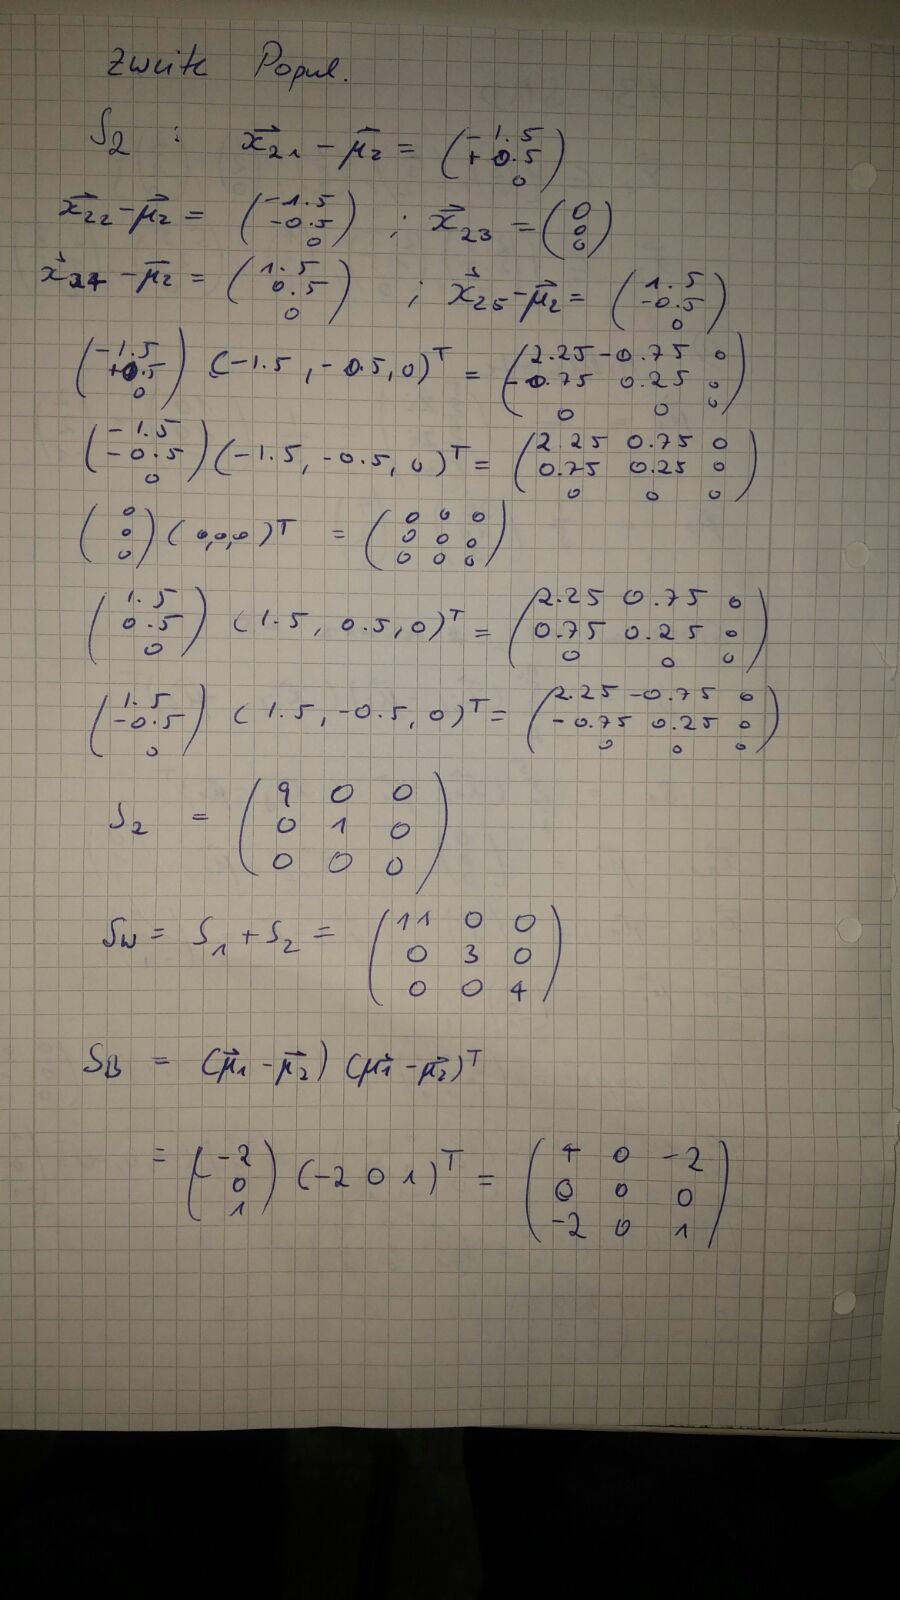 Zweite Popul.
S₂ : x⃗₂₁ - μ⃗₂ = (-1.5 +0.5 0)
x⃗₂₂ - μ⃗₂ = (-1.5 -0.5 0) ; x⃗₂₃ = (0 0 0)
x⃗₂₄ - μ⃗₂ = (1.5 0.5 0) ; x⃗₂₅ - μ⃗₂ = (1.5 -0.5 0)
(-1.5 +0.5 0) (-1.5, -0.5, 0)ᵀ = (2.25 -0.75 0 -0.75 0.25 0 0 0 0)
(-1.5 -0.5 0) (-1.5, -0.5, 0)ᵀ = (2.25 0.75 0 0.75 0.25 0 0 0 0)
(0 0 0) (0,0,0)ᵀ = (0 0 0 0 0 0 0 0 0)
(1.5 0.5 0) (1.5, 0.5, 0)ᵀ = (2.25 0.75 0 0.75 0.25 0 0 0 0)
(1.5 -0.5 0) (1.5, -0.5, 0)ᵀ = (2.25 -0.75 0 -0.75 0.25 0 0 0 0)
S₂ = (9 0 0 0 1 0 0 0 0)
Sw = S₁ + S₂ = (11 0 0 0 3 0 0 0 4)
S_B = (μ⃗₁ - μ⃗₂) (μ⃗₁ - μ⃗₂)ᵀ
= (-2 0 1) (-2 0 1)ᵀ = (4 0 -2 0 0 0 -2 0 1)